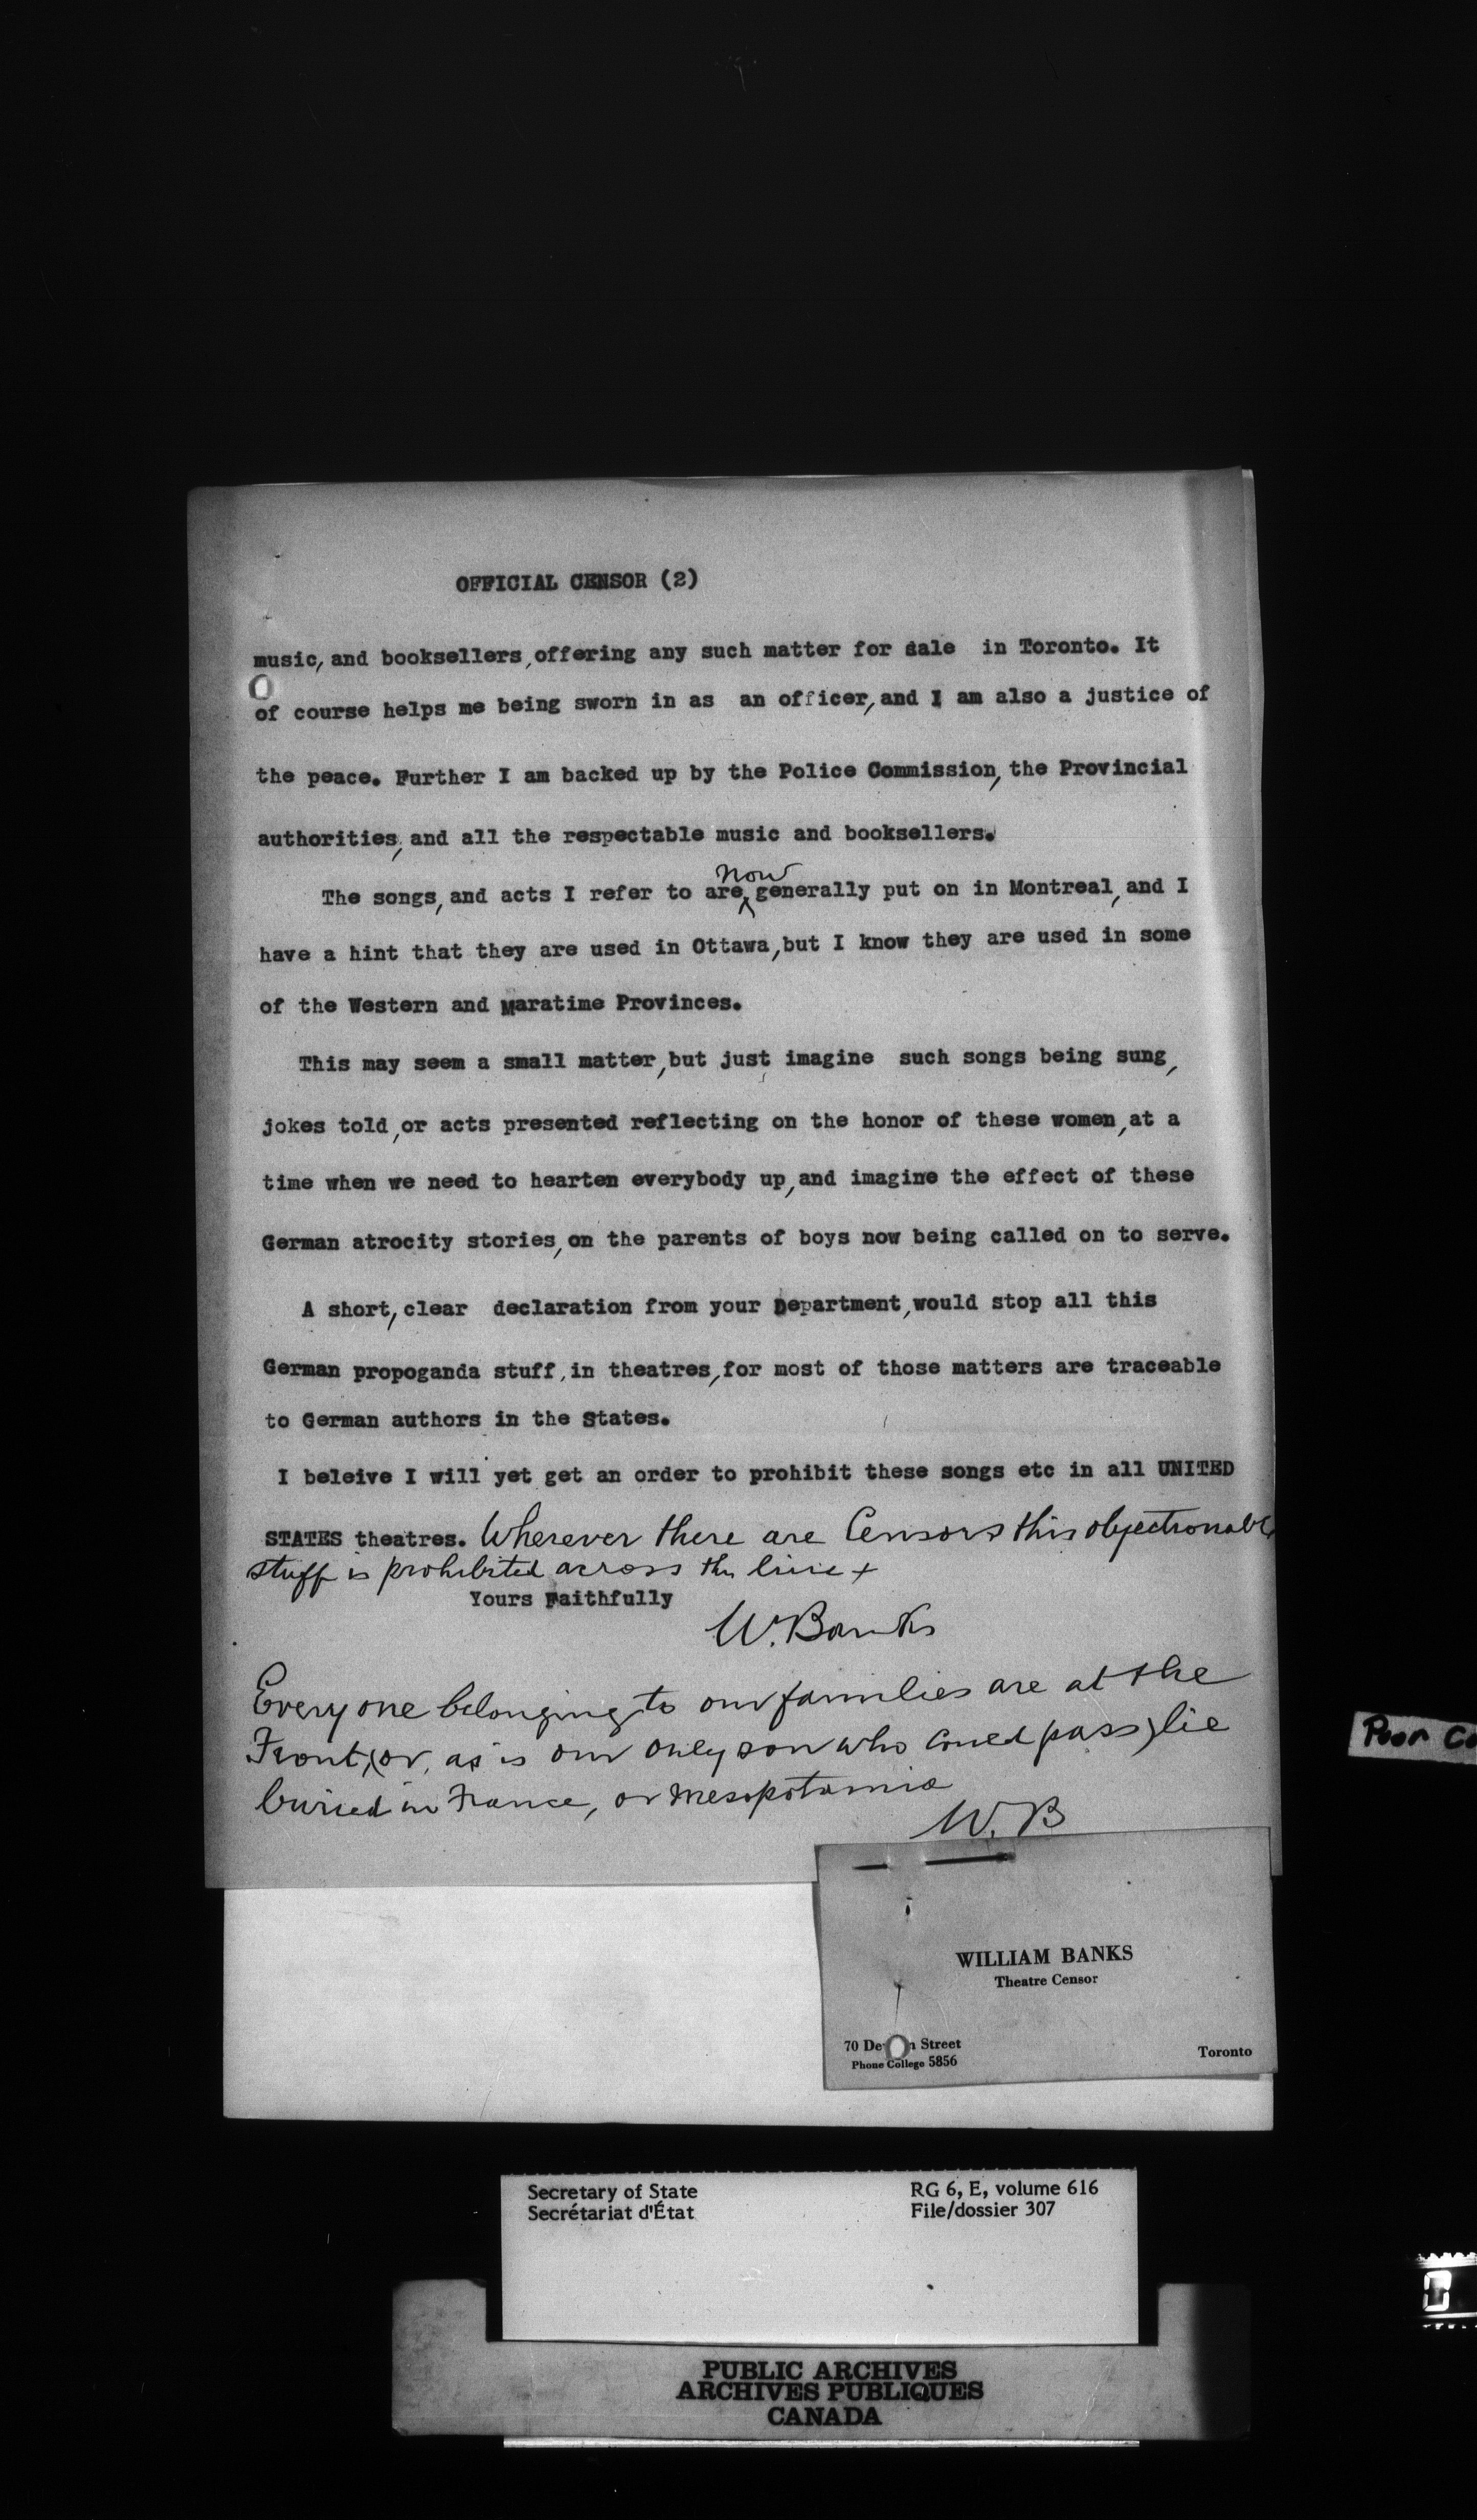 OFFICIAL CENSOR (2)
music, and booksellers, offering any such matter for sale in Toronto. It
of course helps me being sworn in as an officer, and I am also a justice of
the peace. Further I am backed up by the Police Commission, the Provincial
authorities, and all the respectable music and booksellers.
now
The songs, and acts I refer to are generally put on in Montreal, and I
have a hint that they are used in Ottawa, but I know they are used in some
of the Western and Maratime Provinces.
This may seem a small matter, but just imagine such songs being sung,
jokes told, or acts presented reflecting on the honor of these women, at a
time when we need to hearten everybody up, and imagine the effect of these
German atrocity stories, on the parents of boys now being called on to serve.
A short, clear declaration from your Department, would stop all this
German propoganda stuff, in theatres, for most of those matters are traceable
to German authors in the States.
I beleive I will yet get an order to prohibit these songs etc in all UNITED
STATES theatres. Wherever there are Censors this objectionable
stuff is prohibited across the line +
Yours Faithfully
W. Banks
Every one belonging to our families are at the
Front, (or, as is our only son who could pass) lie
buried in France, or Mesopotamia
W. B
WILLIAM BANKS
Theatre Censor
70 De n Street
Phone College 5856
Toronto
Poor Co
Secretary of State
Secrétariat d'État
RG 6, E, volume 616
File/dossier 307
PUBLIC ARCHIVES
ARCHIVES PUBLIQUES
CANADA